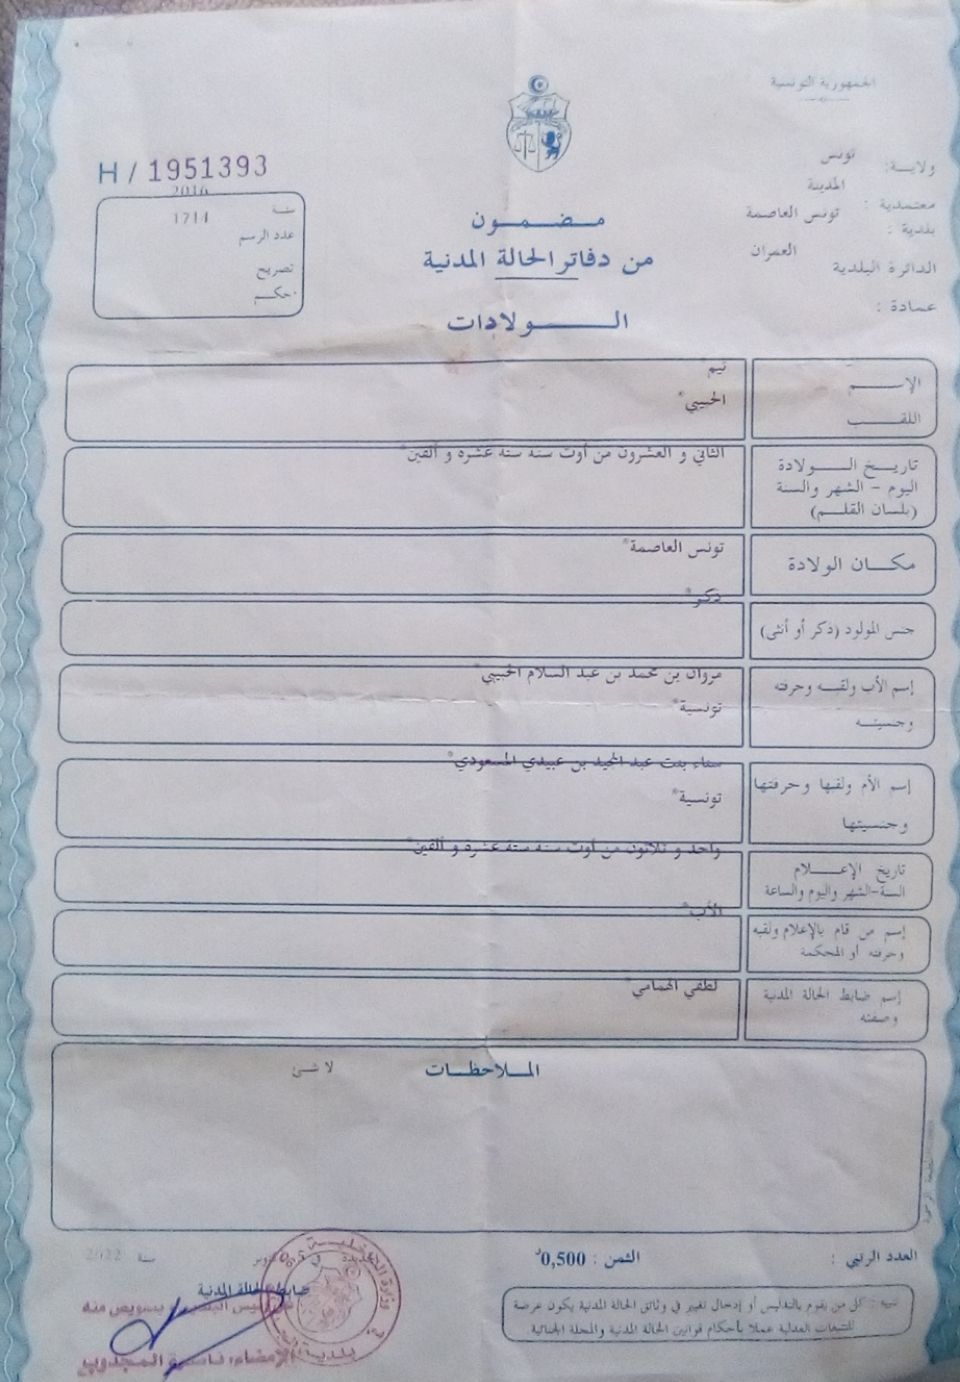 الجمهورية التونسية
ولاية: تونس
معتمدية : المدينة
بلدية : تونس العاصمة
الدائرة البلدية العمران
عمادة :
H / 1951393
سنة 2016
عدد الرسم 1714
تصريح
حكم
مضمون
من دفاتر الحالة المدنية
الولادات
الإسم تيم*
اللقب الحبيبي*
تاريخ الولادة الثاني و العشرون من أوت سنة ستة عشرة و ألفين*
اليوم - الشهر والسنة
(بلسان القلم)
مكان الولادة تونس العاصمة*
جنس المولود (ذكر أو أنثى) ذكر*
إسم الأب ولقبه وحرفته مروان بن محمد بن عبد السلام الحبيبي*
وجنسيته تونسية*
إسم الأم ولقبها وحرفتها سناء بنت عبد المجيد بن عبيدي المسعودي*
وجنسيتها تونسية*
تاريخ الإعلام واحد و ثلاثون من أوت سنة ستة عشرة و ألفين*
السنة-الشهر واليوم والساعة
إسم من قام بالإعلام ولقبه الأب*
وحرفته أو المحكمة
إسم ضابط الحالة المدنية لطفي الهمامي*
وصفته
الملاحظات
لا شئ
العدد الرتبي :
الثمن : 0,500د
سنة 2022
ضابط الحالة المدنية
بتفويض منه
الإمضاء:
وزارة الداخلية
تنبيه : كل من يقوم بالتدليس أو إدخال تغيير في وثائق الحالة المدنية يكون عرضة
للتتبعات العدلية عملا بأحكام قوانين الحالة المدنية والمجلة الجنائية